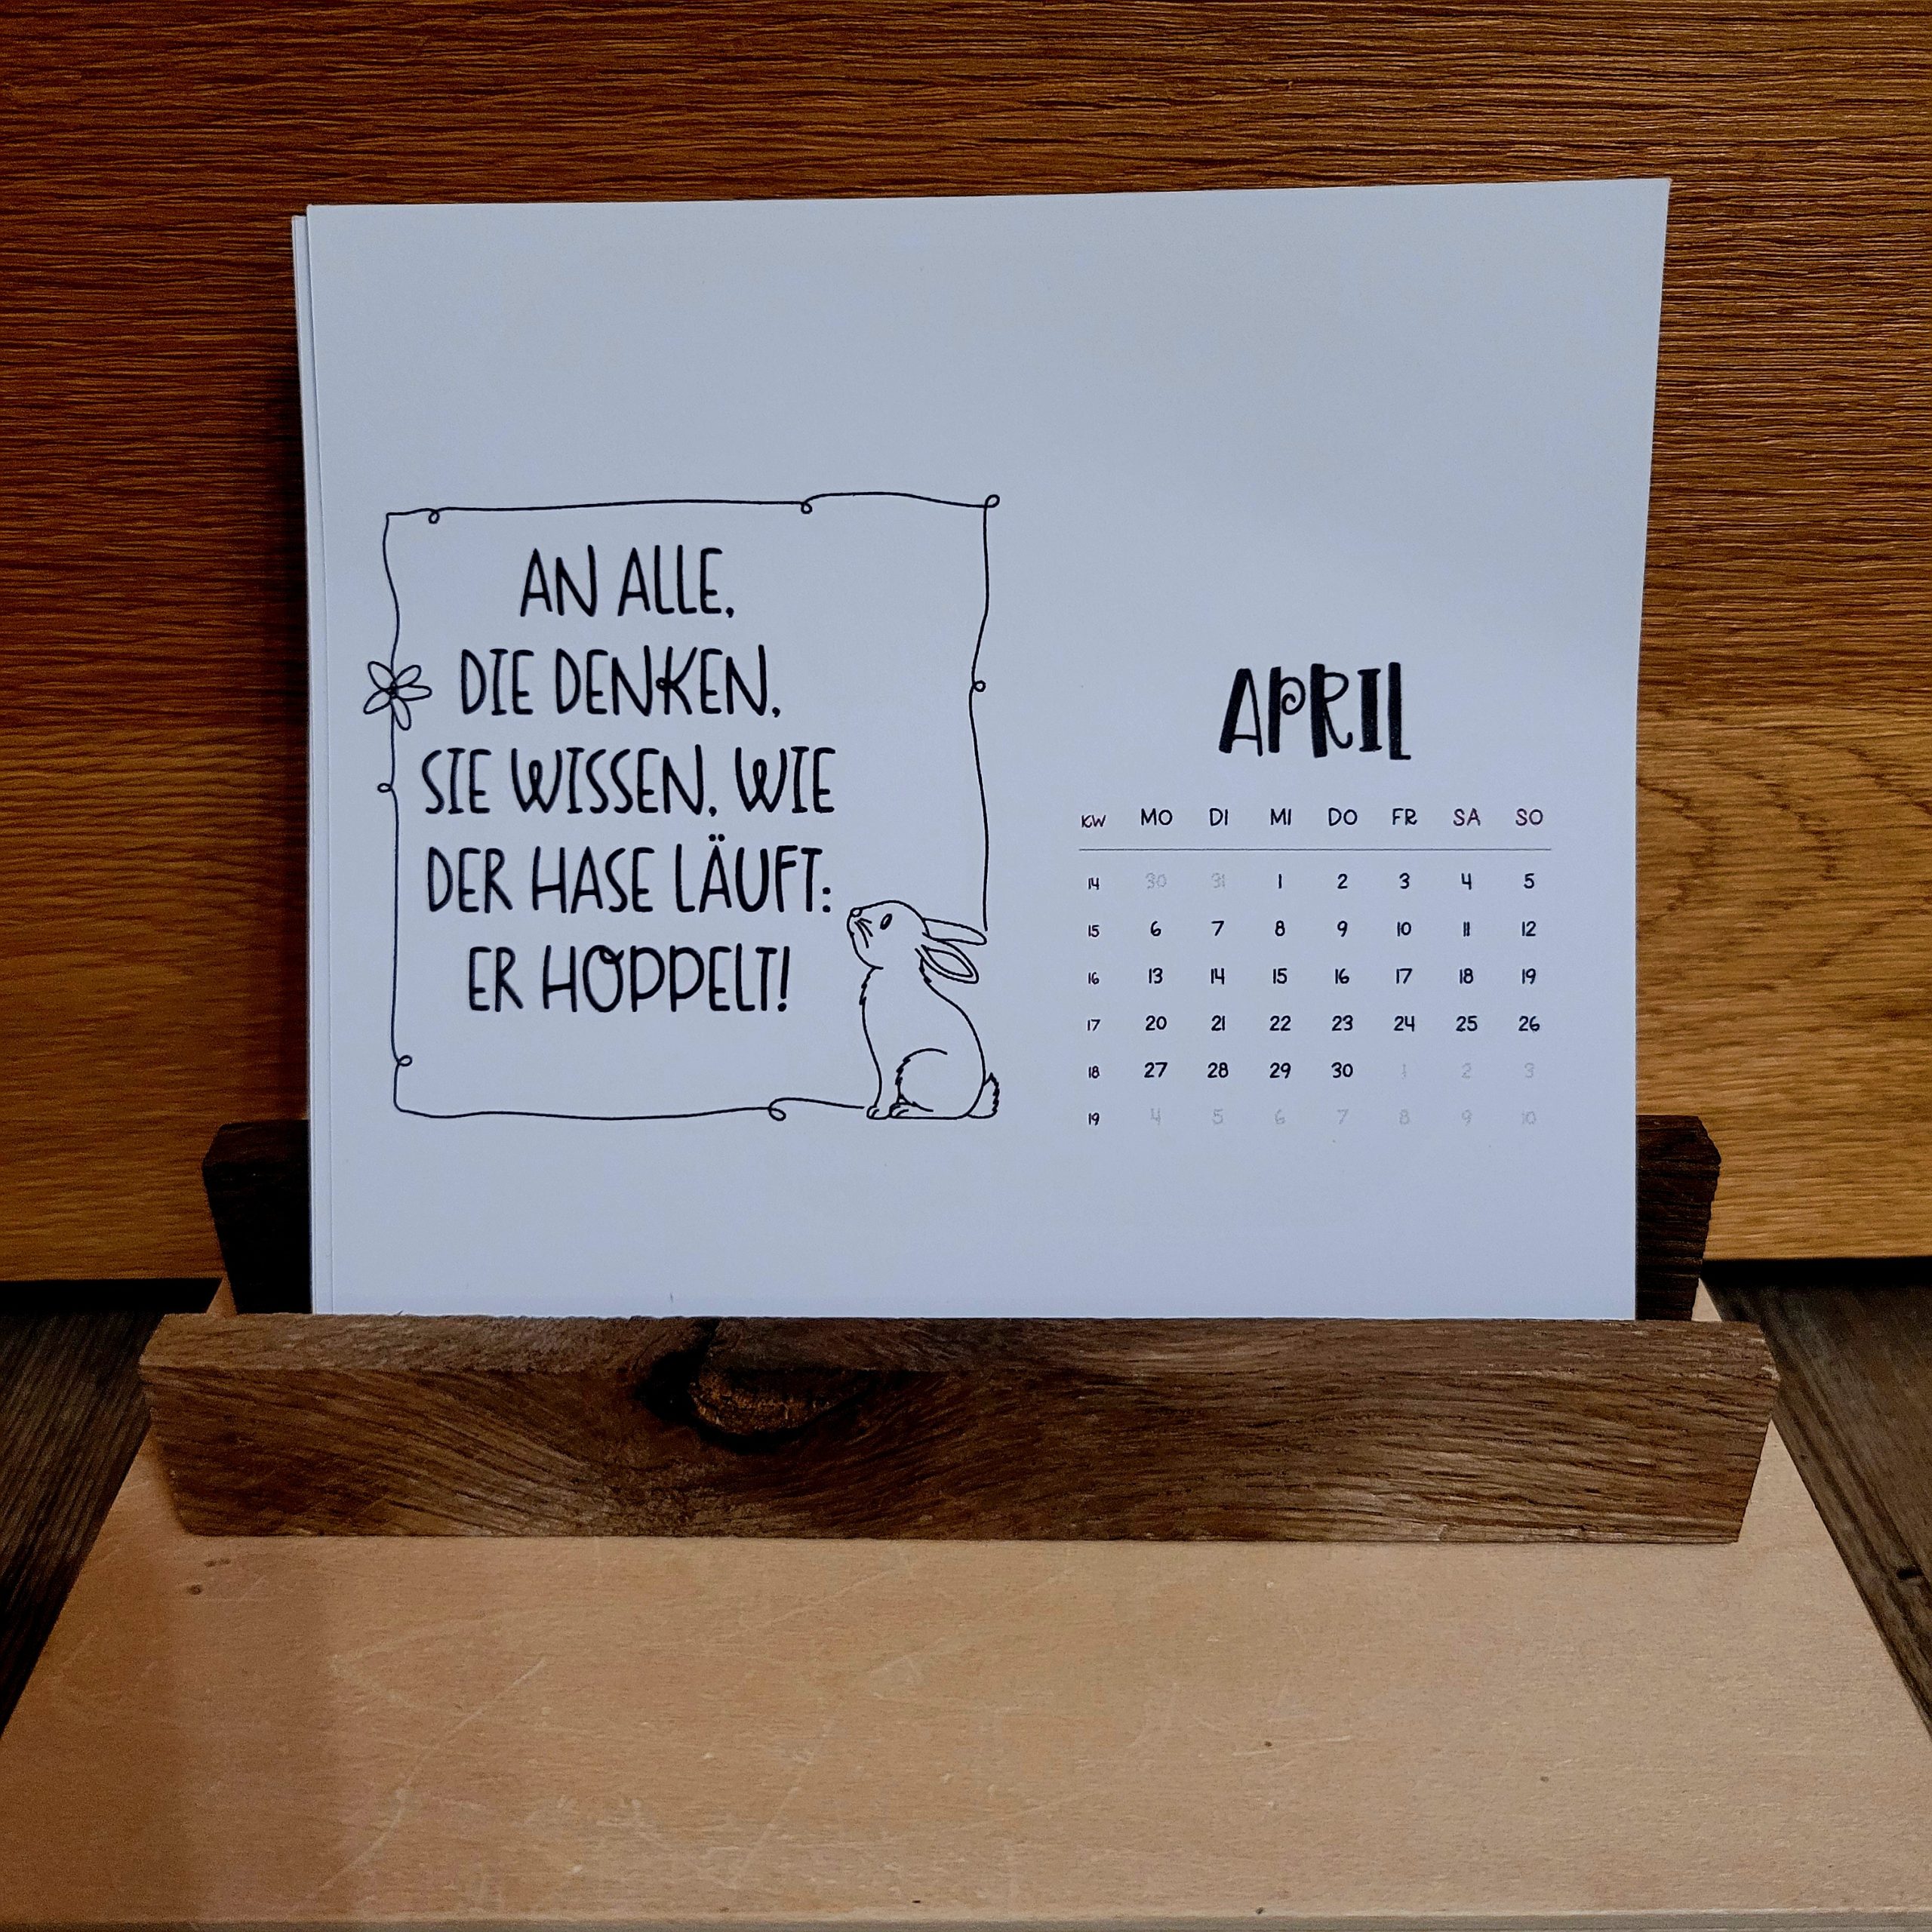 AN ALLE,
DIE DENKEN,
SIE WISSEN, WIE
DER HASE LÄUFT:
ER HOPPELT!
APRIL
KW MO DI MI DO FR SA SO
14 30 31 1 2 3 4 5
15 6 7 8 9 10 11 12
16 13 14 15 16 17 18 19
17 20 21 22 23 24 25 26
18 27 28 29 30 1 2 3
19 4 5 6 7 8 9 10